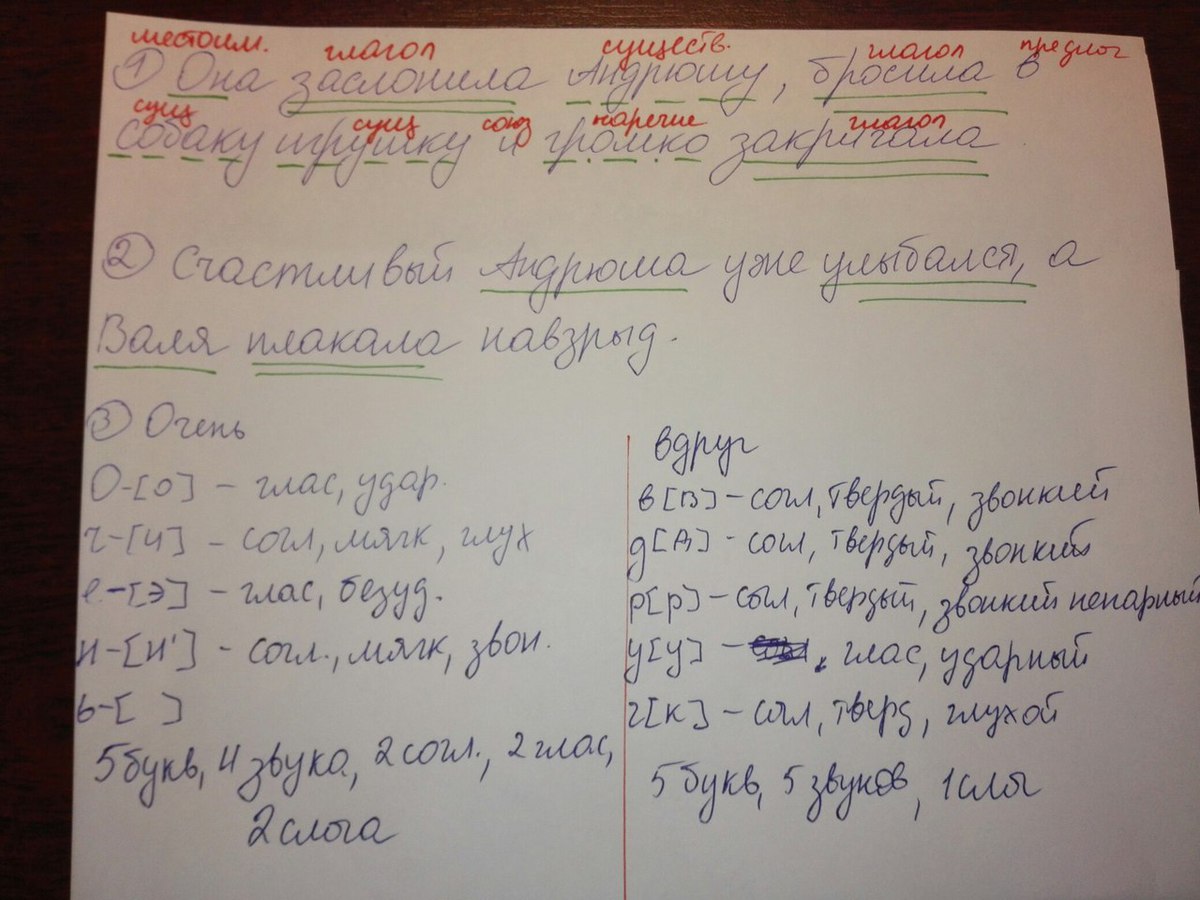 местоим. глагол существ. глагол предлог
① Она заслонила Андрюшу, бросила в
сущ сущ союз наречие глагол
собаку игрушку и громко закричала
② Счастливый Андрюша уже улыбался, а
Валя плакала навзрыд.
③ Очень
О-[о] - глас, удар.
ч-[ч] - согл, мягк, глух
е-[э] - глас, безуд.
н-[н'] - согл., мягк, звон.
ь-[ ]
5 букв, 4 звука, 2 согл., 2 глас,
2 слога
вдруг
в[в] - согл, твердый, звонкий
д[д] - согл, твердый, звонкий
р[р] - согл, твердый, звонкий непарный
у[у] - глас, ударный
г[к] - согл, тверд, глухой
5 букв, 5 звуков, 1 слог